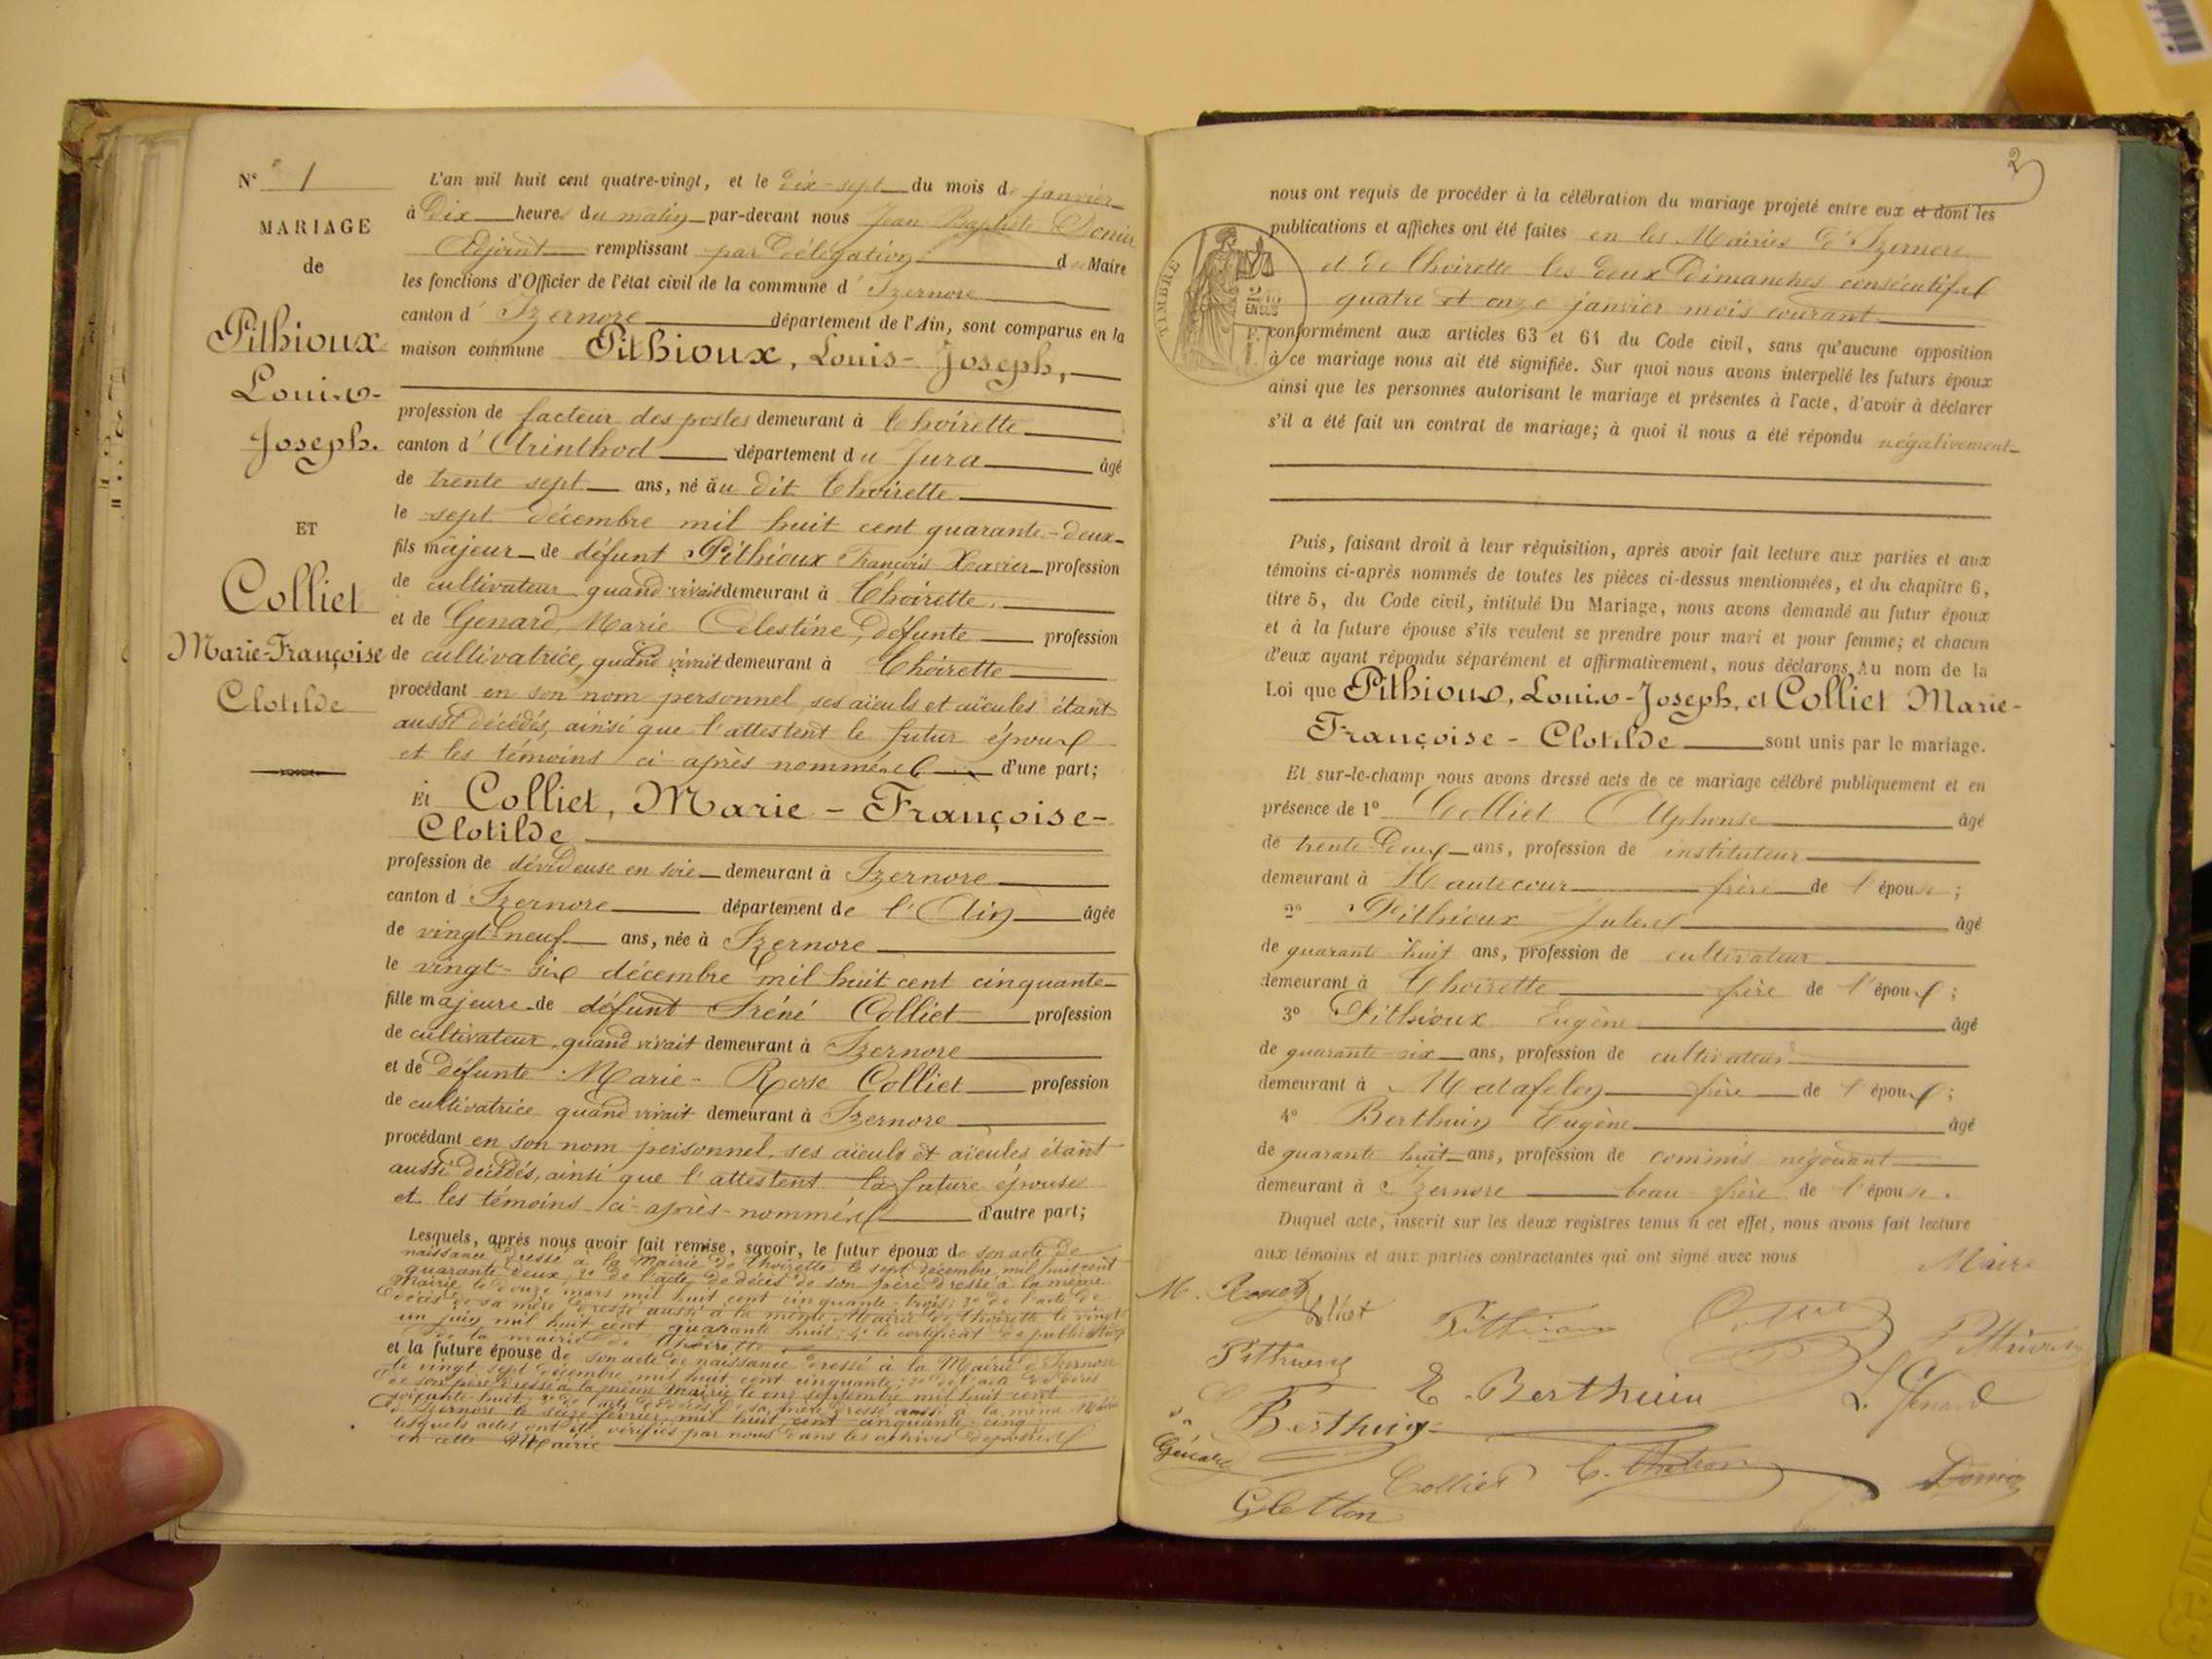 N° 1
MARIAGE
de
Pithioux
Louis-
Joseph.
ET
Colliet
Marie-Françoise
Clotilde
L'an mil huit cent quatre-vingt, et le dix-sept du mois de janvier
à dix heures du matin par-devant nous Jean Baptiste Donier
Adjoint remplissant par délégation du Maire
les fonctions d'Officier de l'état civil de la commune d'Izernore
canton d'Izernore département de l'Ain, sont comparus en la
maison commune Pithioux, Louis-Joseph,
profession de facteur des postes demeurant à Thoirette
canton d'Arinthod département du Jura âgé
de trente sept ans, né au dit Thoirette
le sept décembre mil huit cent quarante-deux
fils majeur de défunt Pithioux François Xavier profession
de cultivateur quand vivait demeurant à Thoirette.
et de Genard, Marie Célestine, défunte profession
de cultivatrice, quand vivait demeurant à Thoirette
procédant en son nom personnel, ses aïeuls et aïeules étant
aussi décédés, ainsi que l'attestent le futur époux
et les témoins ci après nommés d'une part;
Et Colliet, Marie-Françoise-
Clotilde
profession de dévideuse en soie demeurant à Izernore
canton d'Izernore département de l'Ain âgée
de vingt-neuf ans, née à Izernore
le vingt-six décembre mil huit cent cinquante
fille majeure de défunt Iréné Colliet profession
de cultivateur, quand vivait demeurant à Izernore
et de défunte Marie-Rose Colliet profession
de cultivatrice quand vivait demeurant à Izernore
procédant en son nom personnel, ses aïeuls et aïeules étant
aussi décédés, ainsi que l'attestent la future épouse
et les témoins ci-après-nommés d'autre part;
Lesquels, après nous avoir fait remise, savoir, le futur époux de son acte de
naissance dressé à la Mairie de Thoirette le sept décembre mil huit cent
quarante deux, 2° de l'acte de décès de son père dressé à la même
Mairie le douze mars mil huit cent cinquante-trois; 3° de l'acte de
décès de sa mère dressé aussi à la même Mairie de Thoirette le vingt
un juin mil huit cent quarante huit; 4° le certificat de publication
de la mairie de Thoirette
et la future épouse de son acte de naissance dressé à la Mairie d'Izernore
le vingt-sept décembre mil huit cent cinquante; 2° de l'acte de décès
de son père dressé à la même Mairie le onze septembre mil huit cent
soixante-huit; 3° de l'acte de décès de sa mère dressé aussi à la même Mairie
d'Izernore le seize février mil huit cent cinquante-cinq
lesquels actes ont été vérifiés par nous dans les archives déposées
en cette Mairie
2
TIMBRE
nous ont requis de procéder à la célébration du mariage projeté entre eux et dont les
publications et affiches ont été faites en les Mairies d'Izernore
et de Thoirette les deux Dimanches consécutifs
quatre et onze janvier mois courant
conformément aux articles 63 et 64 du Code civil, sans qu'aucune opposition
à ce mariage nous ait été signifiée. Sur quoi nous avons interpellé les futurs époux
ainsi que les personnes autorisant le mariage et présentes à l'acte, d'avoir à déclarer
s'il a été fait un contrat de mariage; à quoi il nous a été répondu négativement
Puis, faisant droit à leur réquisition, après avoir fait lecture aux parties et aux
témoins ci-après nommés de toutes les pièces ci-dessus mentionnées, et du chapitre 6,
titre 5, du Code civil, intitulé Du Mariage, nous avons demandé au futur époux
et à la future épouse s'ils veulent se prendre pour mari et pour femme; et chacun
d'eux ayant répondu séparément et affirmativement, nous déclarons, Au nom de la
Loi que Pithioux, Louis-Joseph, et Colliet Marie-
Françoise-Clotilde sont unis par le mariage.
Et sur-le-champ nous avons dressé acts de ce mariage célébré publiquement et en
présence de 1° Colliet Alphonse âgé
de trente-deux ans, profession de instituteur
demeurant à Hautecour frère de l'épouse;
2° Pithioux Jules âgé
de quarante huit ans, profession de cultivateur
demeurant à Thoirette frère de l'époux;
3° Pithioux Eugène âgé
de quarante-six ans, profession de cultivateur
demeurant à Matafelon frère de l'époux;
4° Berthuin Eugène âgé
de quarante huit ans, profession de commis négociant
demeurant à Izernore beau frère de l'épouse.
Duquel acte, inscrit sur les deux registres tenus à cet effet, nous avons fait lecture
aux témoins et aux parties contractantes qui ont signé avec nous Maire
Pithioux
Pithioux
E. Berthuin
L. Génard
Berthuin
Génard
Colliet
Donier
Gletton